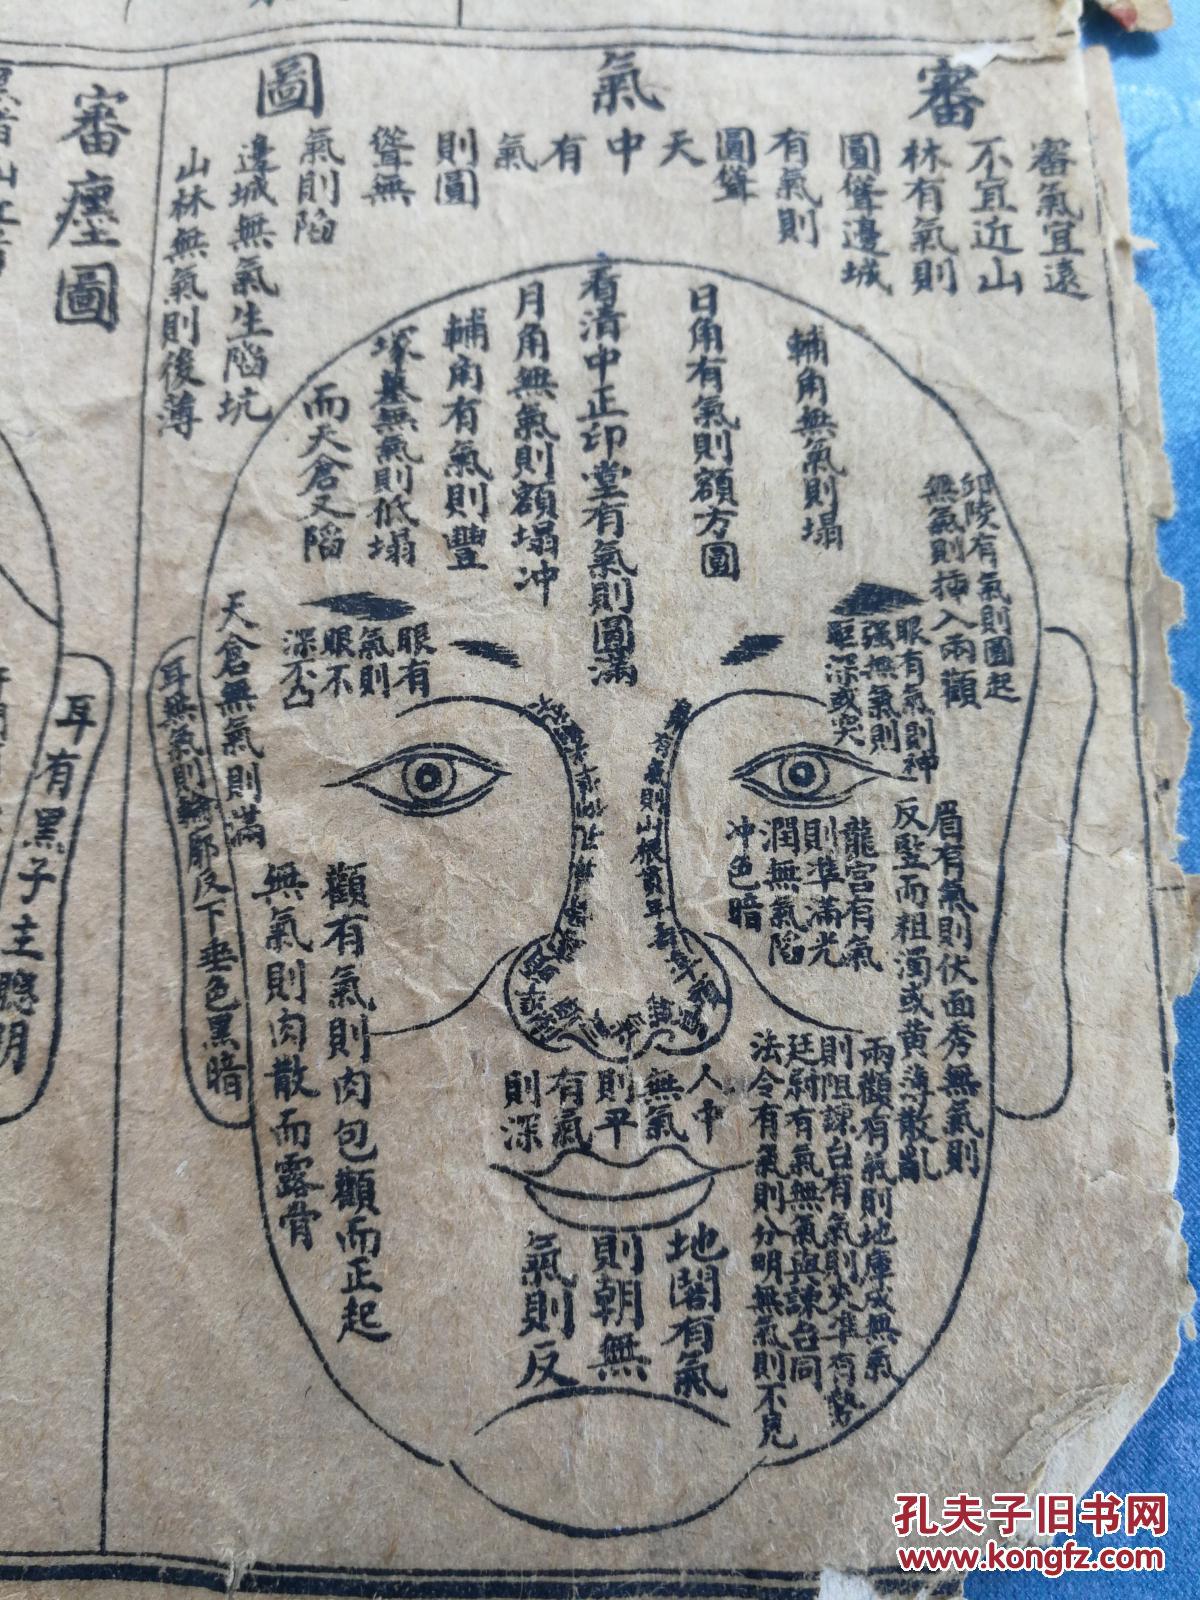 審氣圖
審氣宜遠
不宜近山
林有氣則
圓聳邊城
有氣則
圓聳
天
中
有
氣
則圓
聳無
氣則陷
邊城無氣生陷坑
山林無氣則後薄
輔角無氣則塌
日角有氣則額方圓
看清中正印堂有氣則圓滿
月角無氣則額塌冲
輔角有氣則豐
塚墓無氣則低塌
而天倉又陷
邱陵有氣則圓起
無氣則插入兩顴
眼有氣則神
强無氣則
驅深或突
眼有
氣則
眼不
深不凸
天倉無氣則滿
耳無氣則輪郭反下垂色黑暗
眉有氣則伏面秀無氣則
反豎而粗濁或黄薄散亂
龍宮有氣
則準滿光
潤無氣陷
冲色暗
有氣則山根貫年
顴有氣則肉包顴而正起
無氣則肉散而露骨
人中
無氣
則平
有氣
則深
兩顴有氣則地庫成無氣
則阻諫台有氣則夾準有勢
廷尉有氣無氣與諫台同
法令有氣則分明無氣則不見
地閣有氣
則朝無
氣則反
審㾾圖
耳有黑子主聰明
孔夫子旧书网
www.kongfz.com